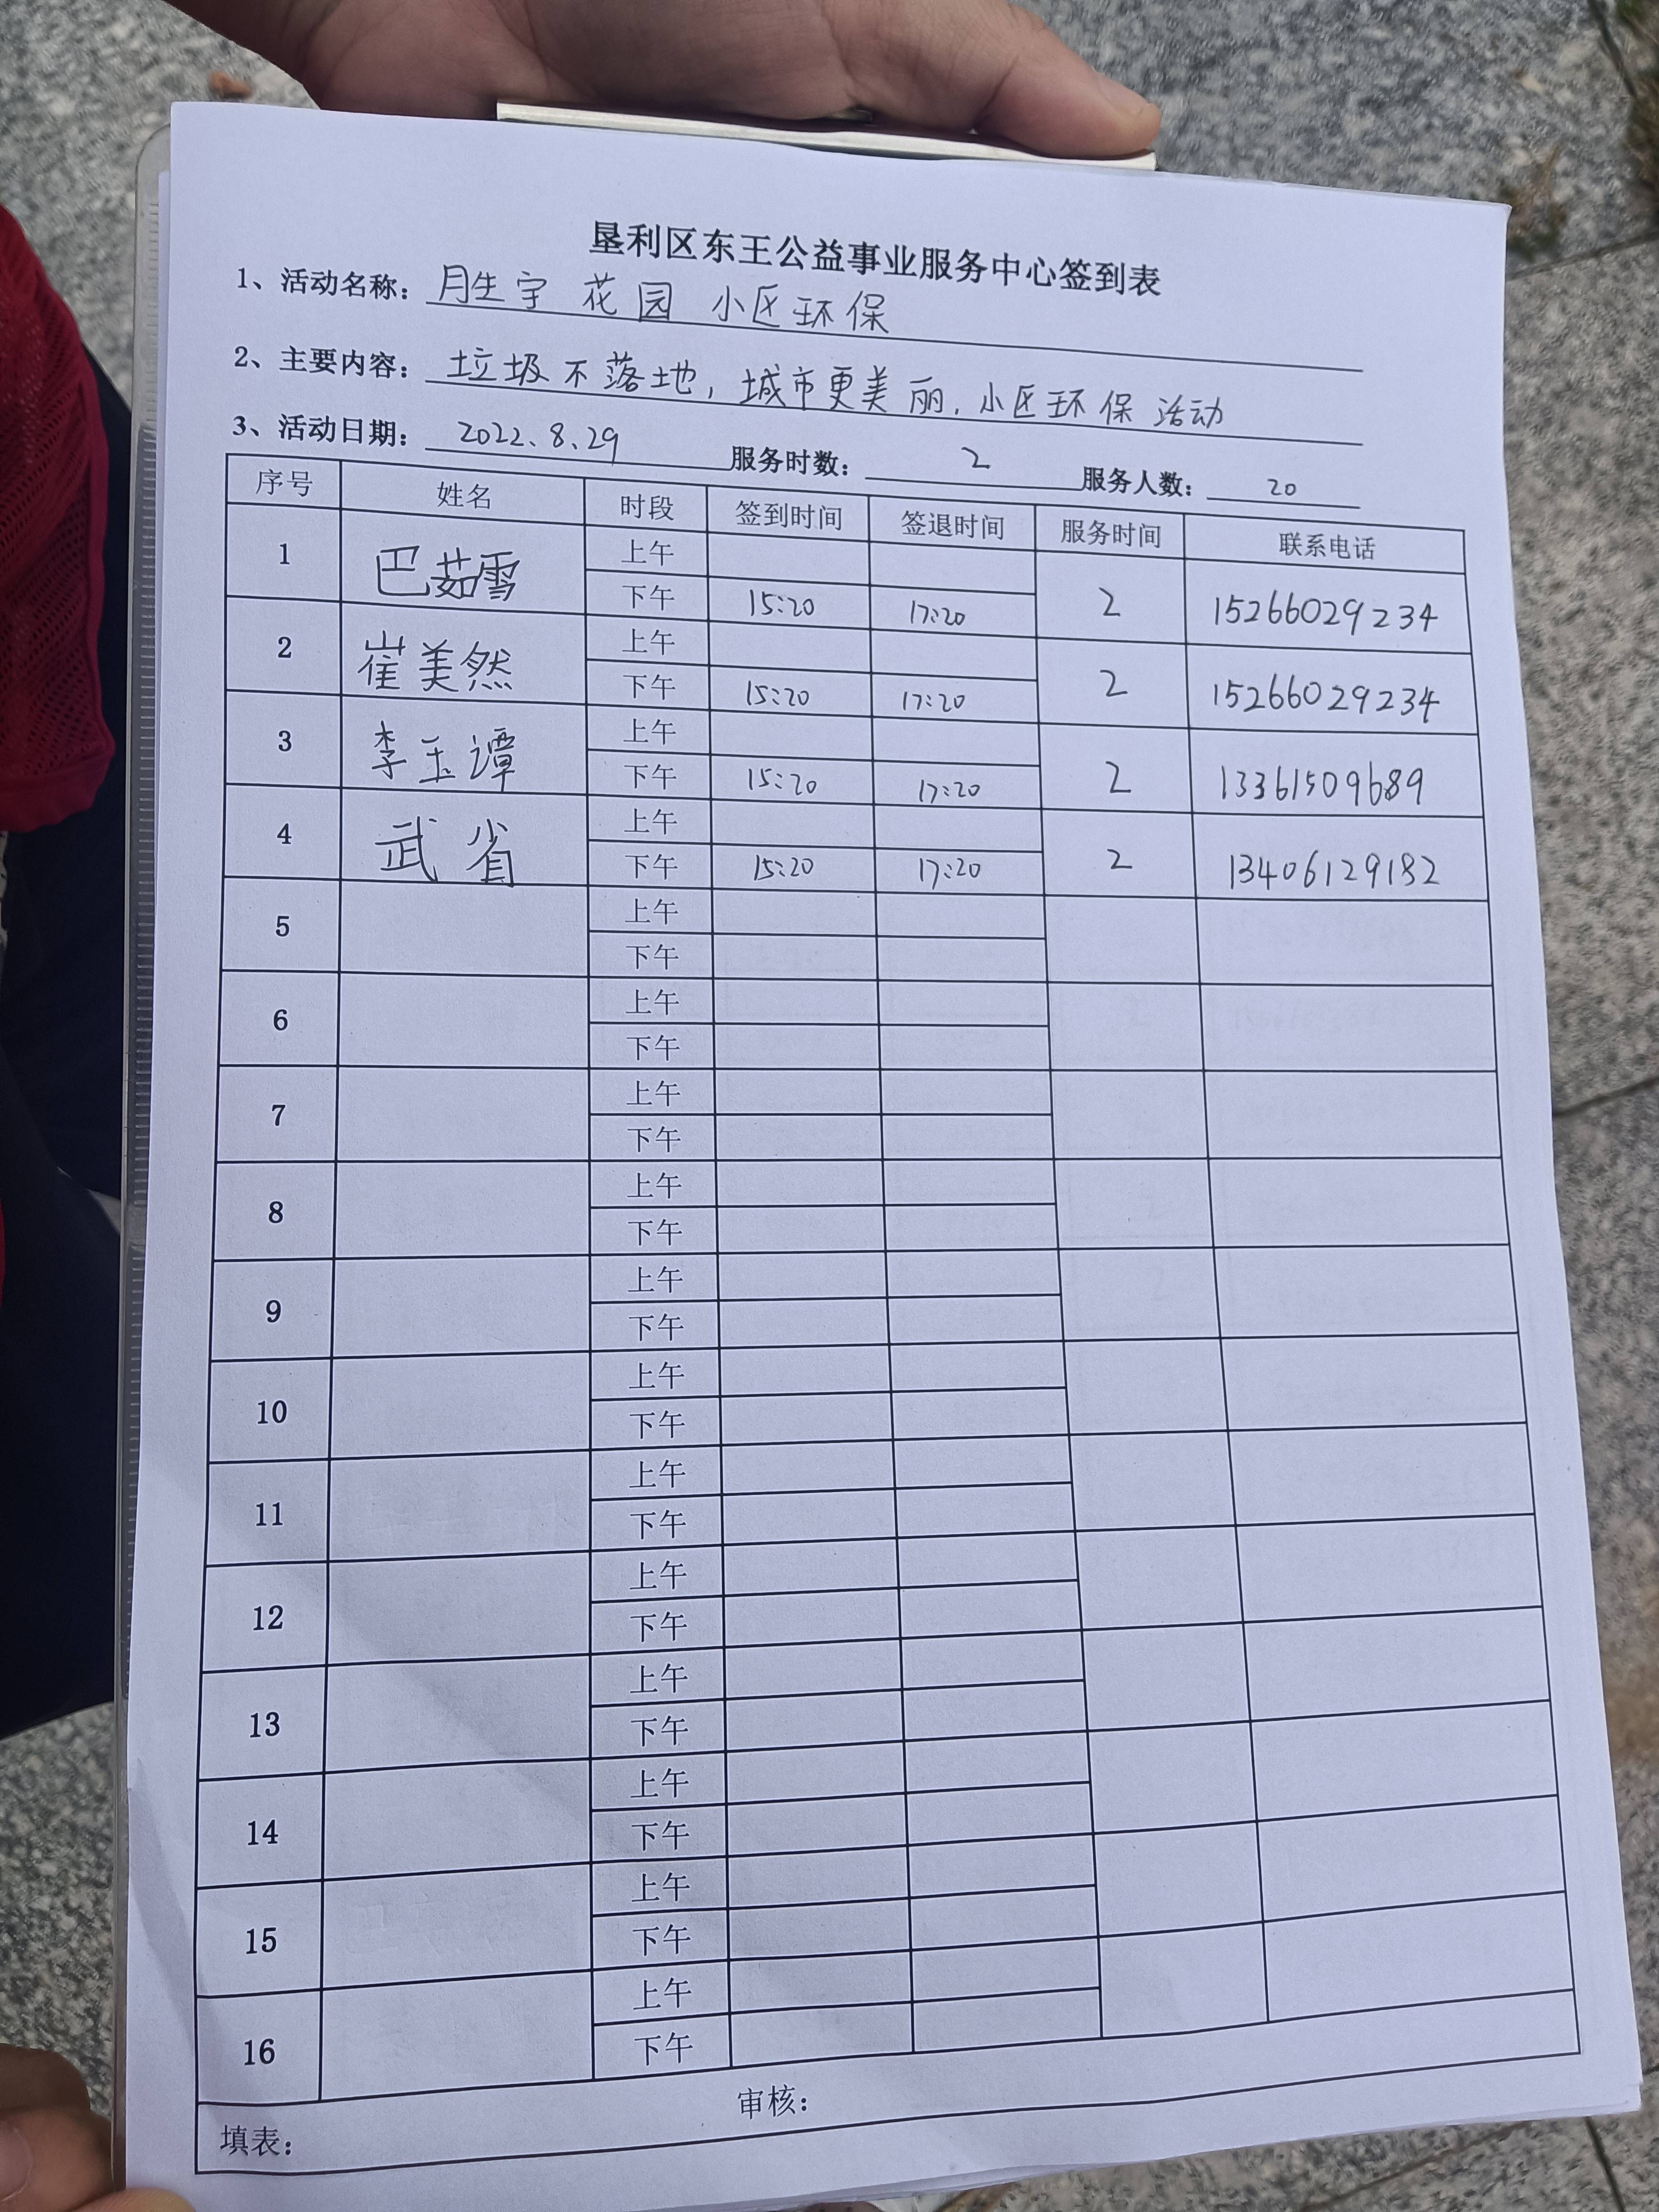 垦利区东王公益事业服务中心签到表
1、活动名称：胜宇 花园 小区环保
2、主要内容：垃圾不落地，城市更美丽．小区环保 活动
3、活动日期：2022.8.29 服务时数：2 服务人数：20
序号 姓名 时段 签到时间 签退时间 服务时间 联系电话
1 巴茹雪 上午
下午 15:20 17:20 2 15266029234
2 崔美然 上午
下午 15:20 17:20 2 15266029234
3 李玉谭 上午
下午 15:20 17:20 2 13361509689
4 武省 上午
下午 15:20 17:20 2 13406129182
5 上午
下午
6 上午
下午
7 上午
下午
8 上午
下午
9 上午
下午
10 上午
下午
11 上午
下午
12 上午
下午
13 上午
下午
14 上午
下午
15 上午
下午
16 上午
下午
填表： 审核：